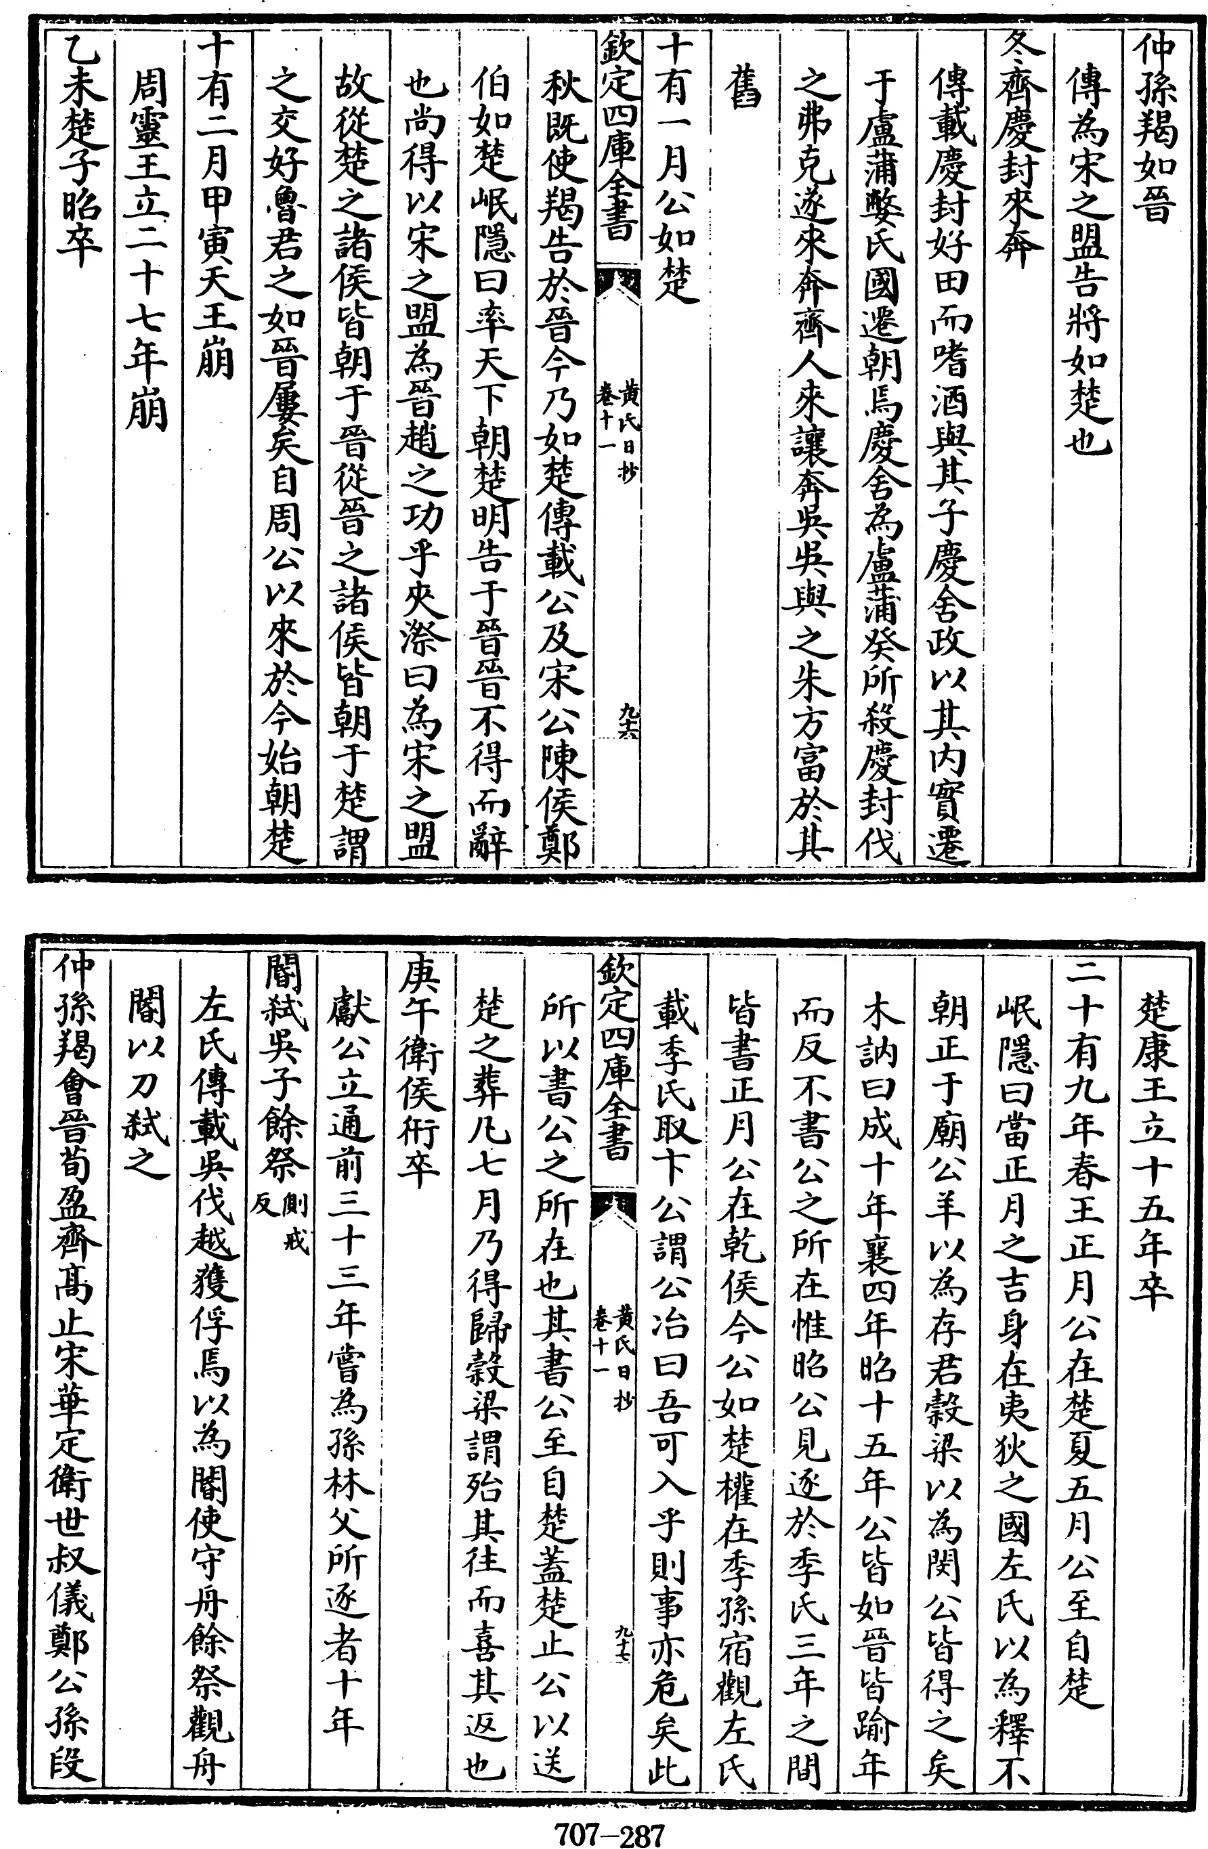 仲孫羯如晉
傳為宋之盟告將如楚也
冬齊慶封來奔
傳載慶封好田而嗜酒與其子慶舍政以其内實遷
于盧蒲嫳氏國遷朝焉慶舍為盧蒲癸所殺慶封伐
之弗克遂來奔齊人來讓奔吳吳與之朱方富於其
舊
十有一月公如楚
欽定四庫全書
黄氏日抄
卷十一
九十六
秋既使羯告於晉今乃如楚傳載公及宋公陳侯鄭
伯如楚岷隱曰率天下朝楚明告于晉晉不得而辭
也尚得以宋之盟為晉趙之功乎夾漈曰為宋之盟
故從楚之諸侯皆朝于晉從晉之諸侯皆朝于楚謂
之交好魯君之如晉屢矣自周公以來於今始朝楚
十有二月甲寅天王崩
周靈王立二十七年崩
乙未楚子昭卒
楚康王立十五年卒
二十有九年春王正月公在楚夏五月公至自楚
岷隱曰當正月之吉身在夷狄之國左氏以為釋不
朝正于廟公羊以為存君穀梁以為閔公皆得之矣
木訥曰成十年襄四年昭十五年公皆如晉皆踰年
而反不書公之所在惟昭公見逐於季氏三年之間
皆書正月公在乾侯今公如楚權在季孫宿觀左氏
載季氏取卞公謂公冶曰吾可入乎則事亦危矣此
欽定四庫全書
黄氏日抄
卷十一
九十七
所以書公之所在也其書公至自楚蓋楚止公以送
楚之葬凡七月乃得歸穀梁謂殆其往而喜其返也
庚午衛侯衎卒
獻公立通前三十三年嘗為孫林父所逐者十年
閽弑吳子餘祭側戒反
左氏傳載吳伐越獲俘焉以為閽使守舟餘祭觀舟
閽以刀弑之
仲孫羯會晉荀盈齊髙止宋華定衛世叔儀鄭公孫段
707-287